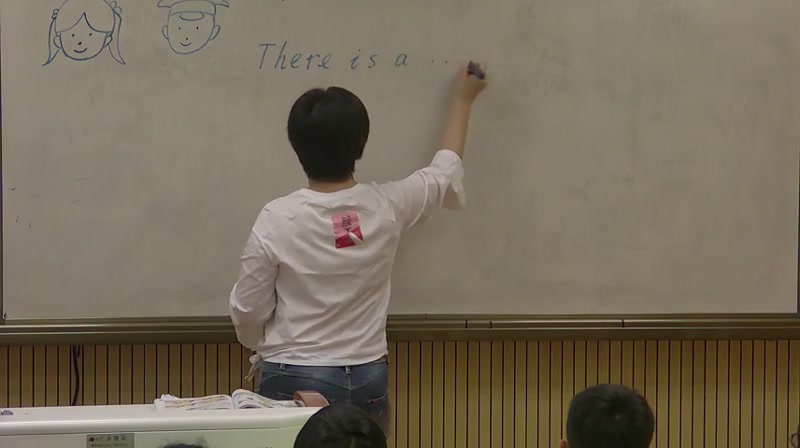 There is a ...